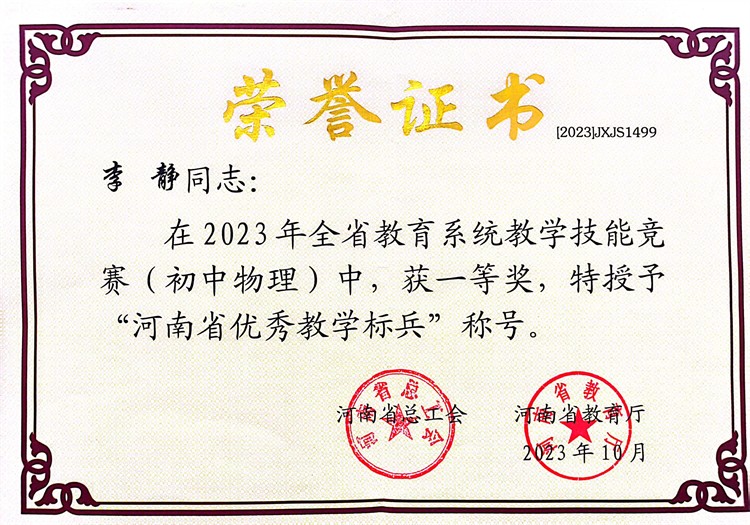 荣誉证书
[2023]JXJS1499
李 静同志：
在2023年全省教育系统教学技能竞
赛（初中物理）中，获一等奖，特授予
“河南省优秀教学标兵”称号。
河南省总工会 河南省教育厅
2023年10月
河南省总工会
河南省教育厅